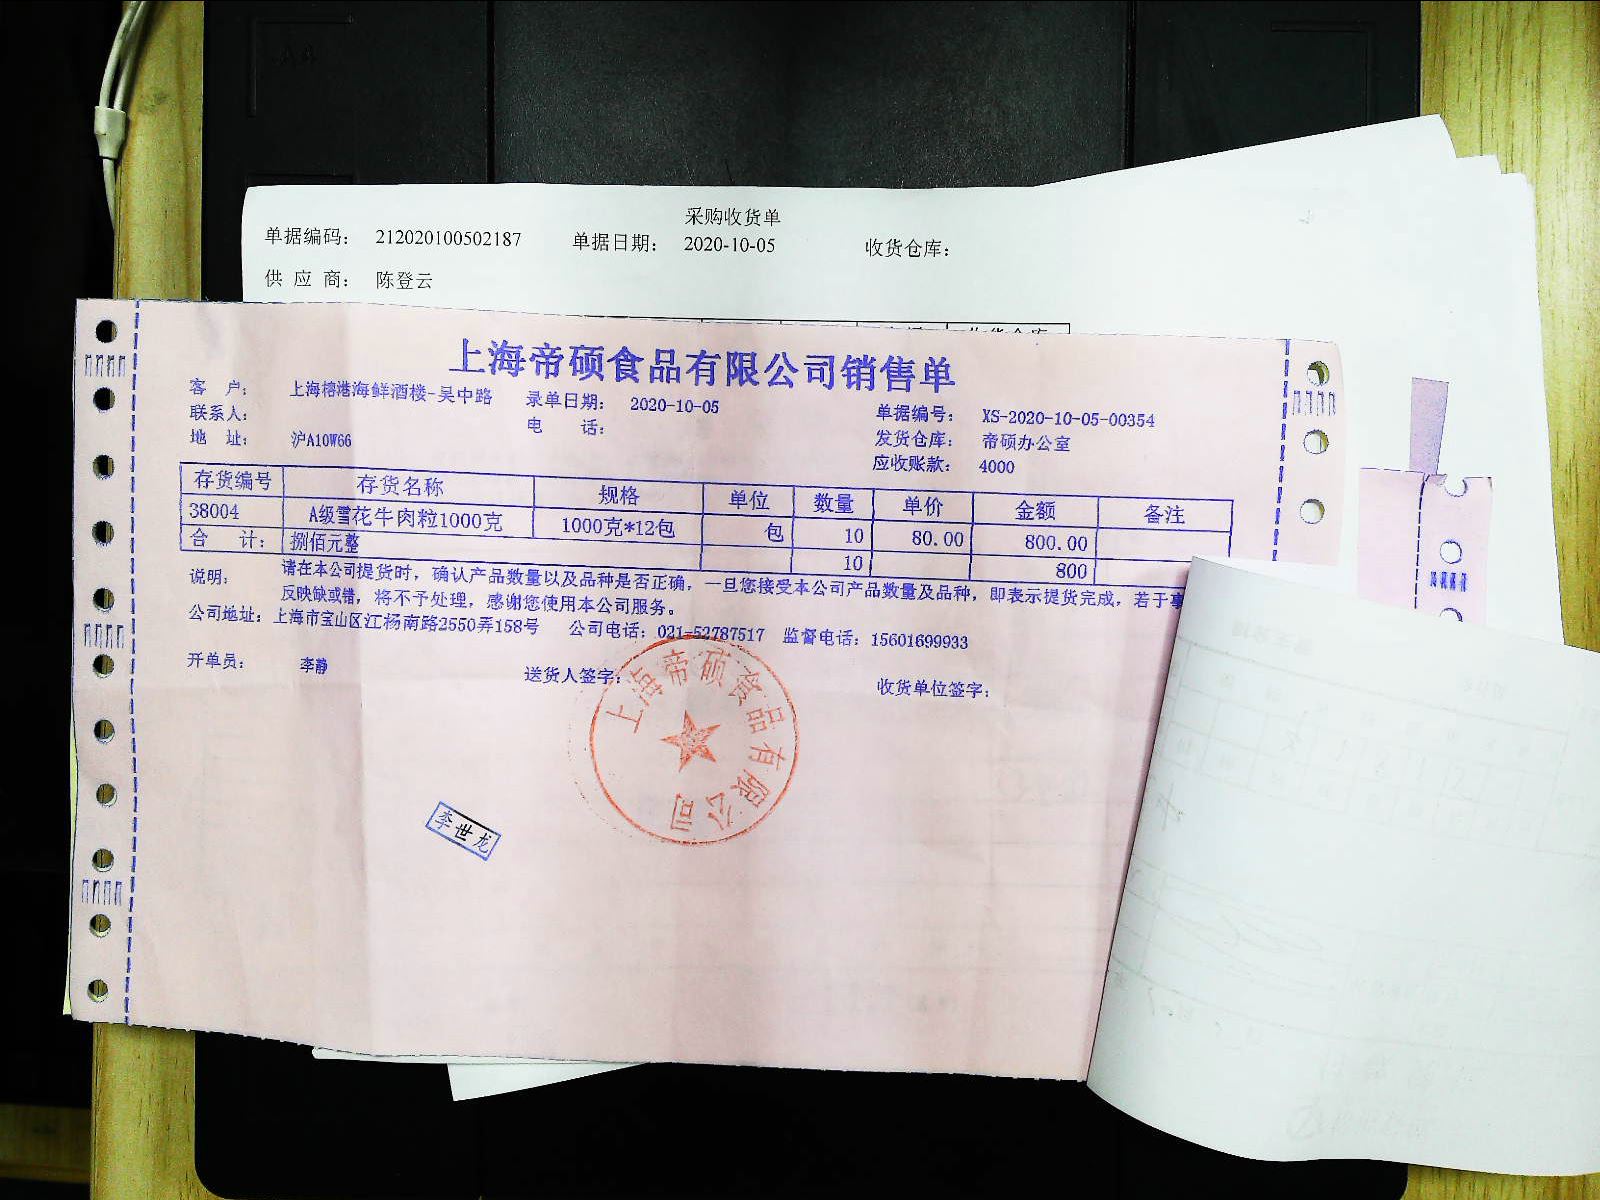 采购收货单
单据编码： 212020100502187 单据日期： 2020-10-05 收货仓库：
供 应 商： 陈登云
上海帝硕食品有限公司销售单
客 户： 上海榕港海鲜酒楼-吴中路 录单日期： 2020-10-05 单据编号： XS-2020-10-05-00354
联系人： 电 话： 发货仓库： 帝硕办公室
地 址： 沪A10W66 应收账款： 4000
存货编号 存货名称 规格 单位 数量 单价 金额 备注
38004 A级雪花牛肉粒1000克 1000克*12包 包 10 80.00 800.00
合 计： 捌佰元整 10 800
说明： 请在本公司提货时，确认产品数量以及品种是否正确，一旦您接受本公司产品数量及品种，即表示提货完成，若于事
反映缺或错，将不予处理，感谢您使用本公司服务。
公司地址：上海市宝山区江杨南路2550弄158号 公司电话：021-52787517 监督电话：15601699933
开单员： 李静 送货人签字： 收货单位签字：
上海帝硕食品有限公司
李世龙